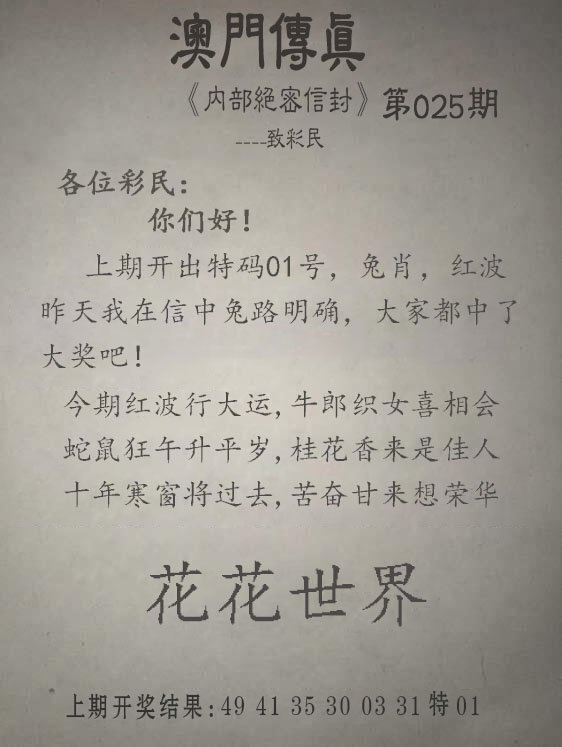 澳門傳眞
《内部絕密信封》第025期
----致彩民
各位彩民：
你们好！
上期开出特码01号，兔肖，红波
昨天我在信中兔路明确，大家都中了
大奖吧！
今期红波行大运,牛郎织女喜相会
蛇鼠狂午升平岁,桂花香来是佳人
十年寒窗将过去,苦奋甘来想荣华
花花世界
上期开奖结果:49 41 35 30 03 31特01